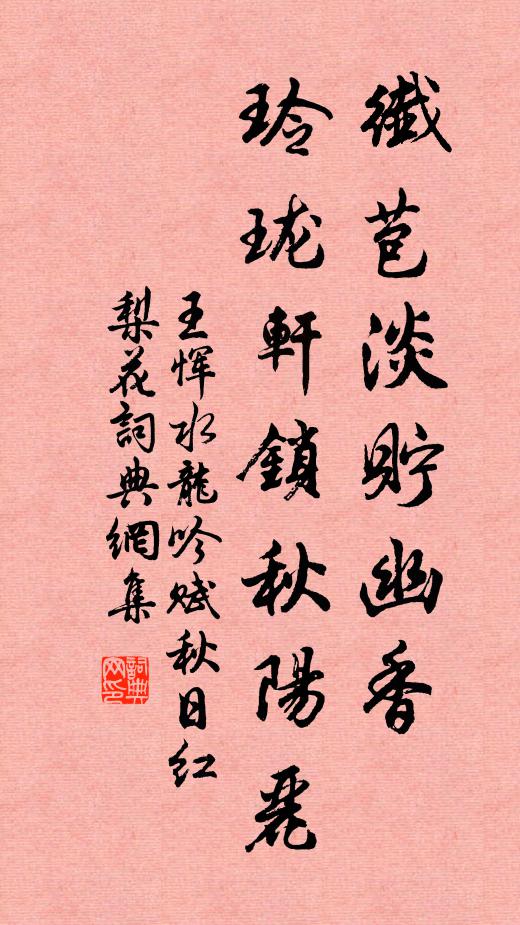 纖苞淡貯幽香
玲珑軒鎖秋陽麗
王恽水龍吟赋秋日红
梨花詞典網集
詞典网印